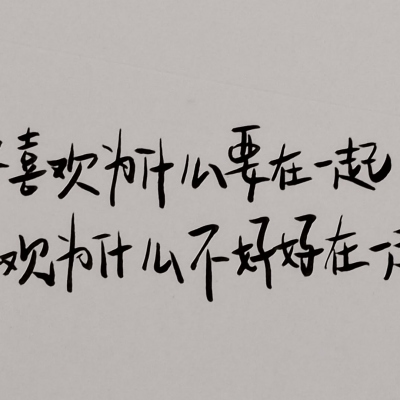 喜欢为什么要在一起
欢为什么不好好在一